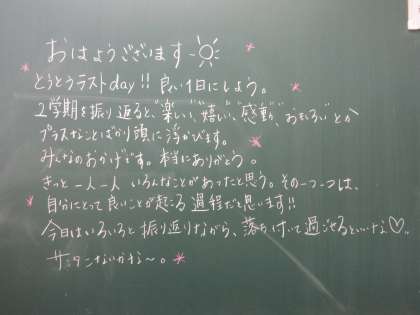 おはようございます
とうとうラストday!! 良い1日にしよう。
2学期を振り返ると、"楽しい"、"嬉しい"、"感動"、"おもしろい"とか
プラスなことばかり頭に浮かびます。
みんなのおかげです。本当にありがとう。
きっと一人一人 いろんなことがあったと思う。その一つ一つは、
自分にとって良いことが起こる過程だと思います!!
今日はいろいろと振り返りながら、落ち着いて過ごせるといいな♡。
サンタこないかな〜。